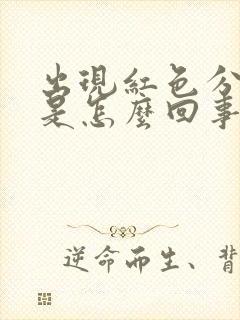 出現紅色分
是怎麼回事
逆命而生、背